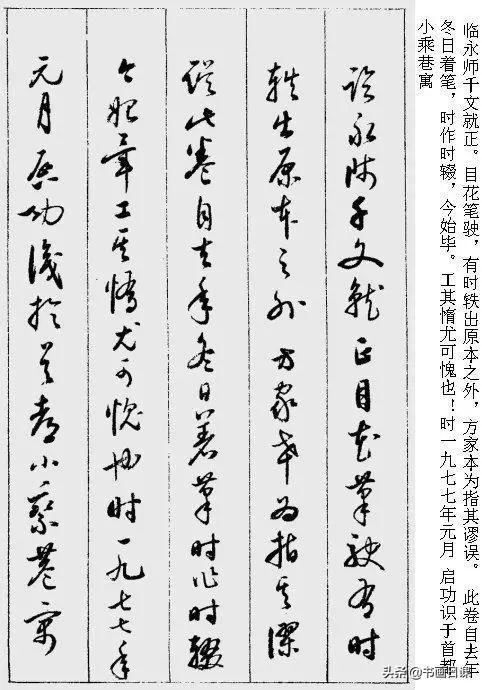 临永师千文就正。目花笔驶，有时轶出原本之外，方家本为指其谬误。 此卷自去年
冬日着笔，时作时辍，今始毕。工其惰尤可愧也！时一九七七年元月 启功识于首都
小乘巷寓
临永师千文就正目花筆駛有时
轶出原本之外方家幸为指其谬
误此卷自去年冬日着筆时作时辍
今始畢工其惰尤可愧也时一九七七年
元月启功識於首都小乘巷寓
头条 @书画日课